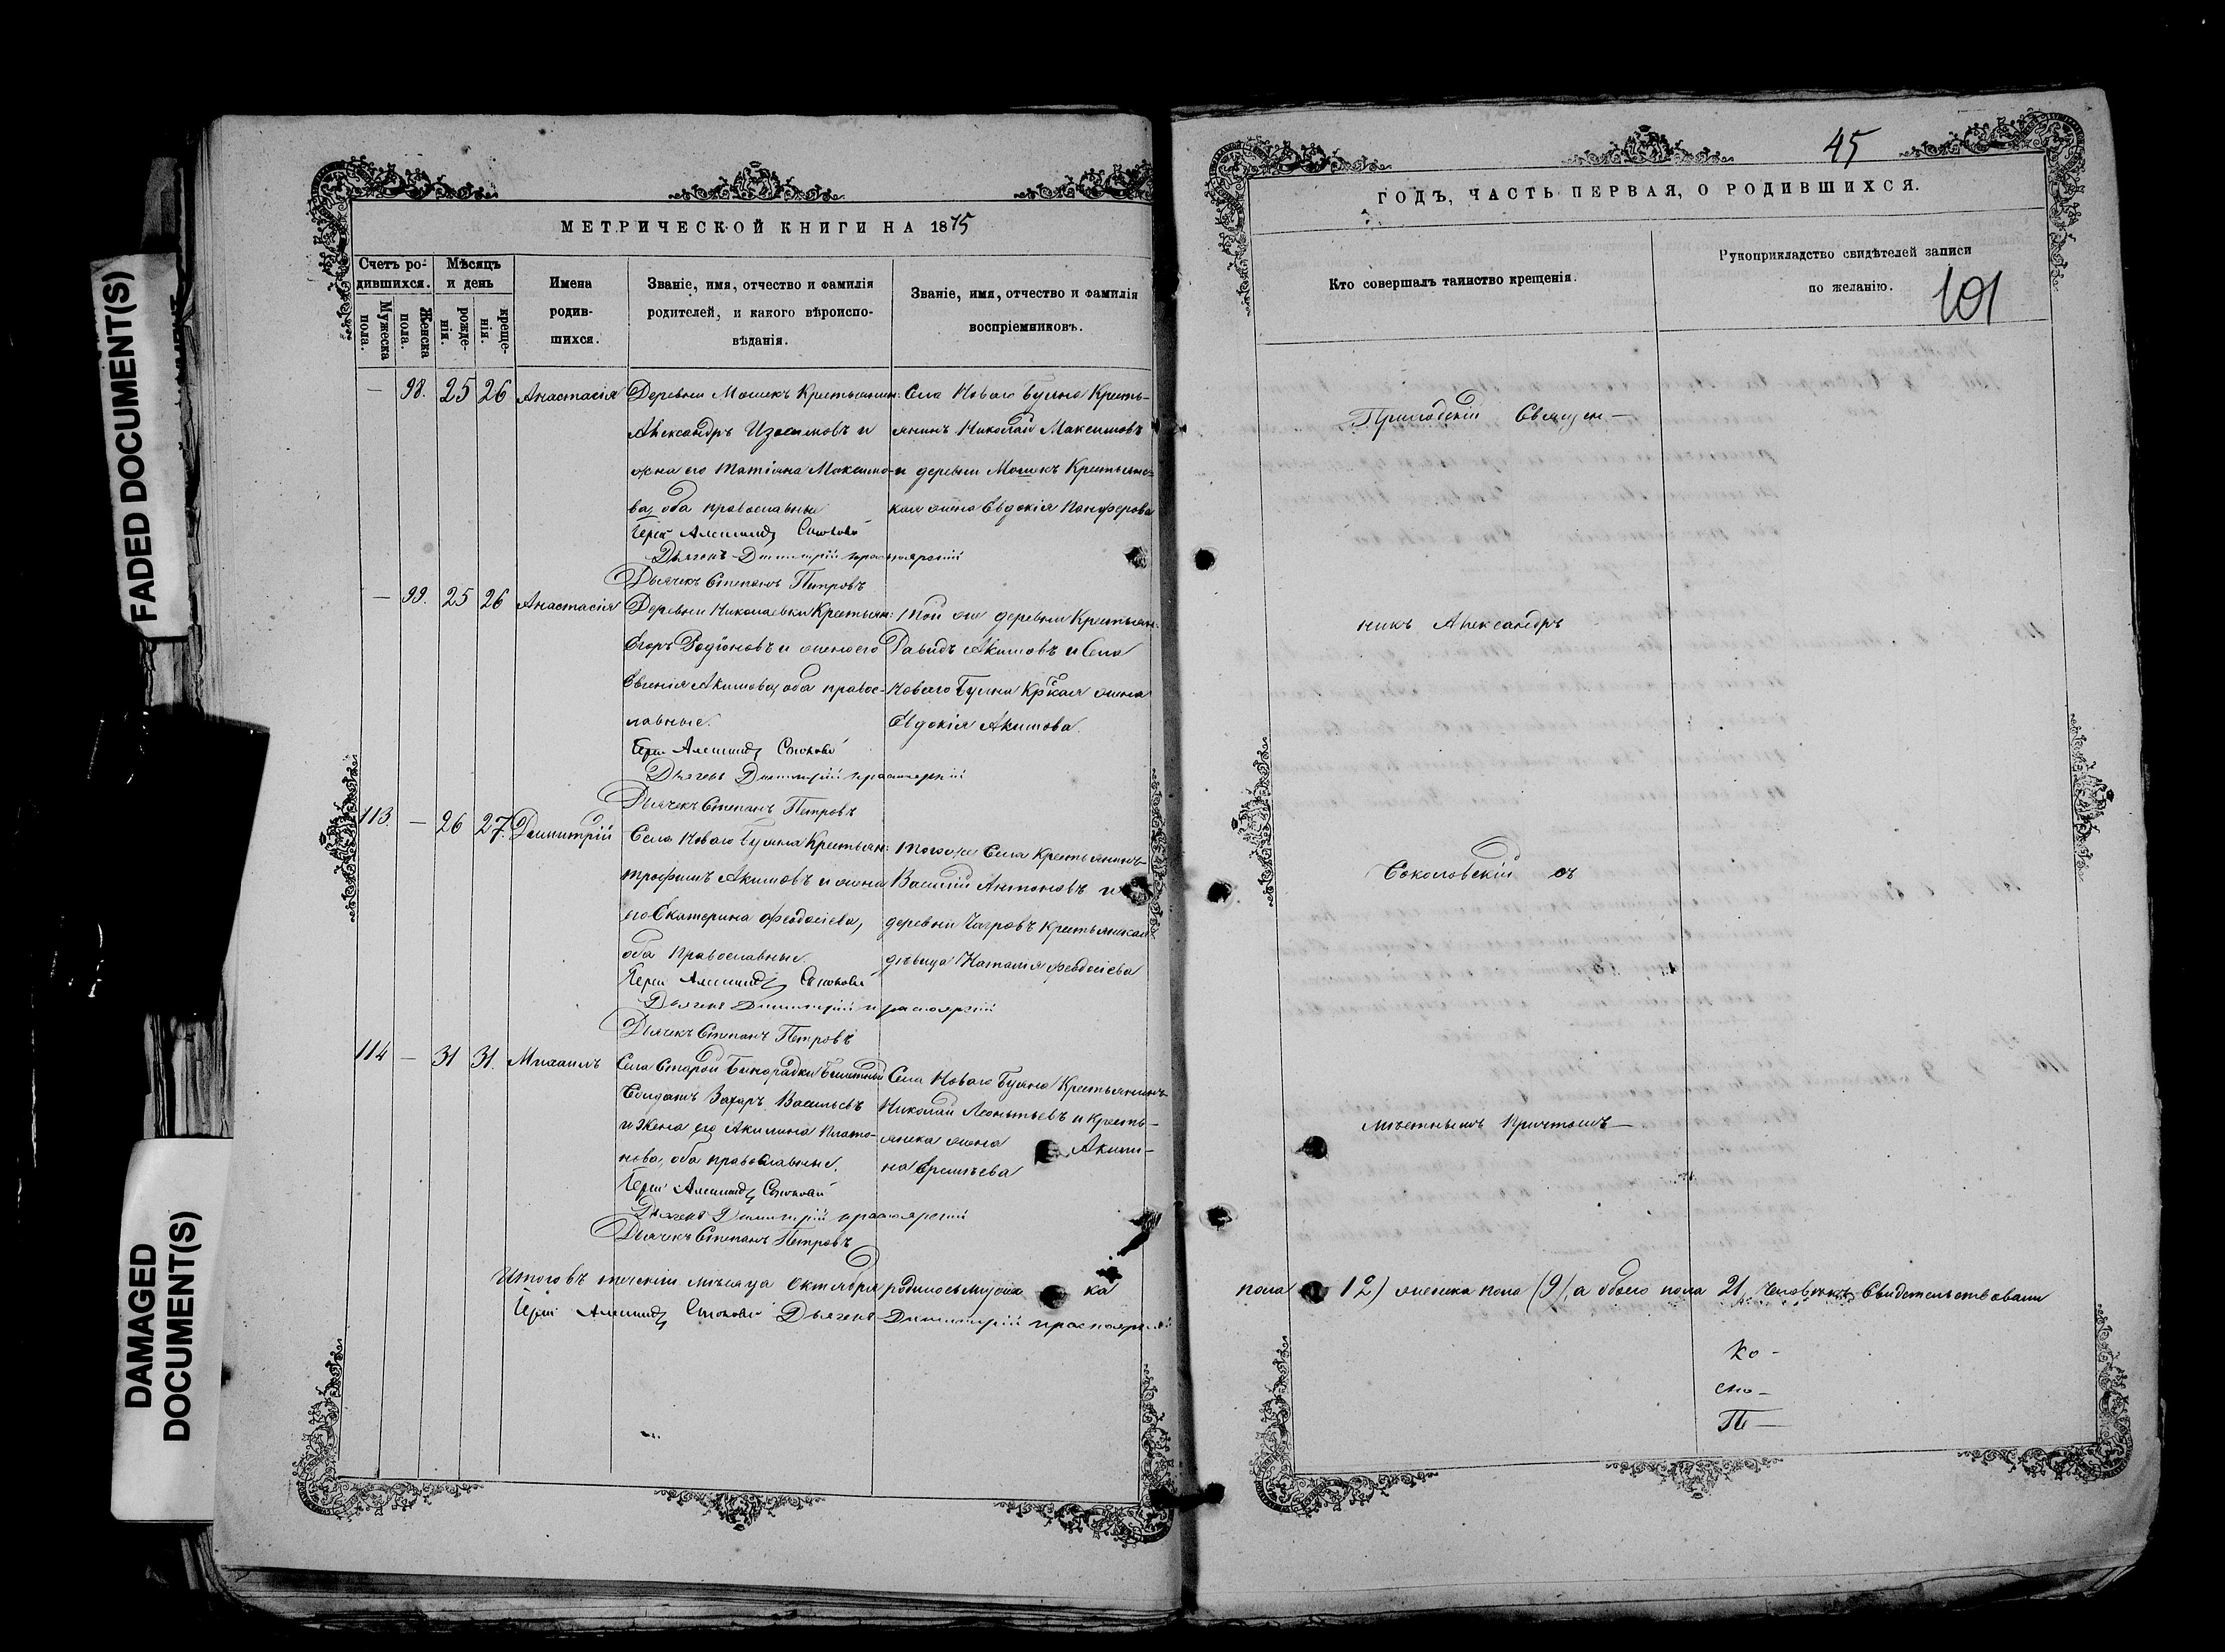 FADED DOCUMENT(S)
DAMAGED
DOCUMENT(S)
МЕТРИЧЕСКОЙ КНИГИ НА 1875
Счетъ ро-
дившихся.
Мужеска
пола.
Женска
пола.
Мѣсяцъ
и день
рожде-
нія.
креще-
нія.
Имена
родив-
шихся.
Званіе, имя, отчество и фамилія
родителей, и какого вѣроиспо-
вѣданія.
Званіе, имя, отчество и фамилія
воспріемниковъ.
— 98. 25 26 Анастасія
Деревни Мошекъ Крестьянин:
Александръ Изосимовъ и
жена его Татіана Максимо-
ва, оба православные
Іерей Александр Соколовский
Дьяконъ Димитрій Красноярский
Дьячекъ Степанъ Петровъ
Села Новаго Буяна Кресть-
янинъ Николай Максимовъ
и деревни Мошекъ Крестьянс-
кая жена Евдокія Панферова
— 99. 25 26 Анастасія
Деревни Николаевки Крестьян:
Егоръ Родіоновъ и жена его
Евгенія Акимова, оба правос-
лавные.
Іерей Александр Соколовский
Дьяконъ Димитрій Красноярский
Дьячекъ Степанъ Петровъ
Той же деревни Крестьян:
Давидъ Акимовъ и Села
Новаго Буяна Кр̃ская жена
Евдокія Акимова.
113. — 26 27. Димитрій
Села Новаго Буяна Крестьян:
Трофимъ Акимовъ и жена
его Екатерина Феодосіева,
оба Православные.
Іерей Александр Соколовский
Дьяконъ Димитрій Красноярский
Дьячекъ Степанъ Петровъ
Того же Села Крестьянинъ
Василій Антоновъ и
деревни Чагровъ Крестьянская
дѣвица Наталія Феодосіева
114 — 31 31. Михаилъ
Села Старой Бинарадки Билетный
Солдатъ Захаръ Васильевъ
и жена его Акилина Плато-
нова, оба православные.
Іерей Александр Соколовский
Дьяконъ Димитрій Красноярский
Дьячекъ Степанъ Петровъ
Села Новаго Буяна Крестьянинъ
Николай Леонтьевъ и Кресть-
янска жена Акили-
на
Итого въ теченіи мѣсяца Октября родилось мужска
Іерей Александр Соколовский Дьяконъ Димитрій Красноярский
45
ГОДЪ, ЧАСТЬ ПЕРВАЯ, О РОДИВШИХСЯ.
Кто совершалъ таинство крещенія.
Рукоприкладство свидѣтелей записи
по желанію.
101
Приходскій Священ-
никъ Александръ
Соколовскій съ
мѣстнымъ Причтомъ
пола 12) женска пола (9) а обоего пола 21, Человѣкъ Свидетельствовали
Ко-
сто-
Пе-